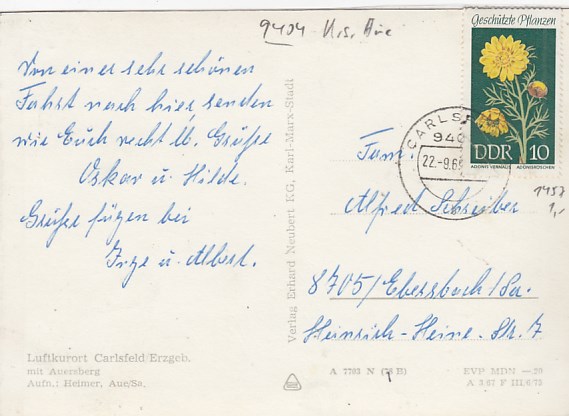 9404 Krs. Aue
Von einer sehr schönen
Fahrt nach hier senden
wir Euch recht lb. Grüße
Oskar u. Hilde.
Grüße fügen bei
Inge u. Albert.
Luftkurort Carlsfeld/Erzgeb.
mit Auersberg
Aufn.: Heimer, Aue/Sa.
Verlag Erhard Neubert KG, Karl-Marx-Stadt
Geschützte Pflanzen
DDR 10
ADONIS VERNALIS ADONISRÖSCHEN
CARLSF
940
22.-9.69
1457
1,-
Fam.
Alfred Schreiber
8705/Ebersbach/Sa.
Heinrich-Heine-Str. 7
A 7703 N
EVP MDN —.20
A 3/67 F III/6/75